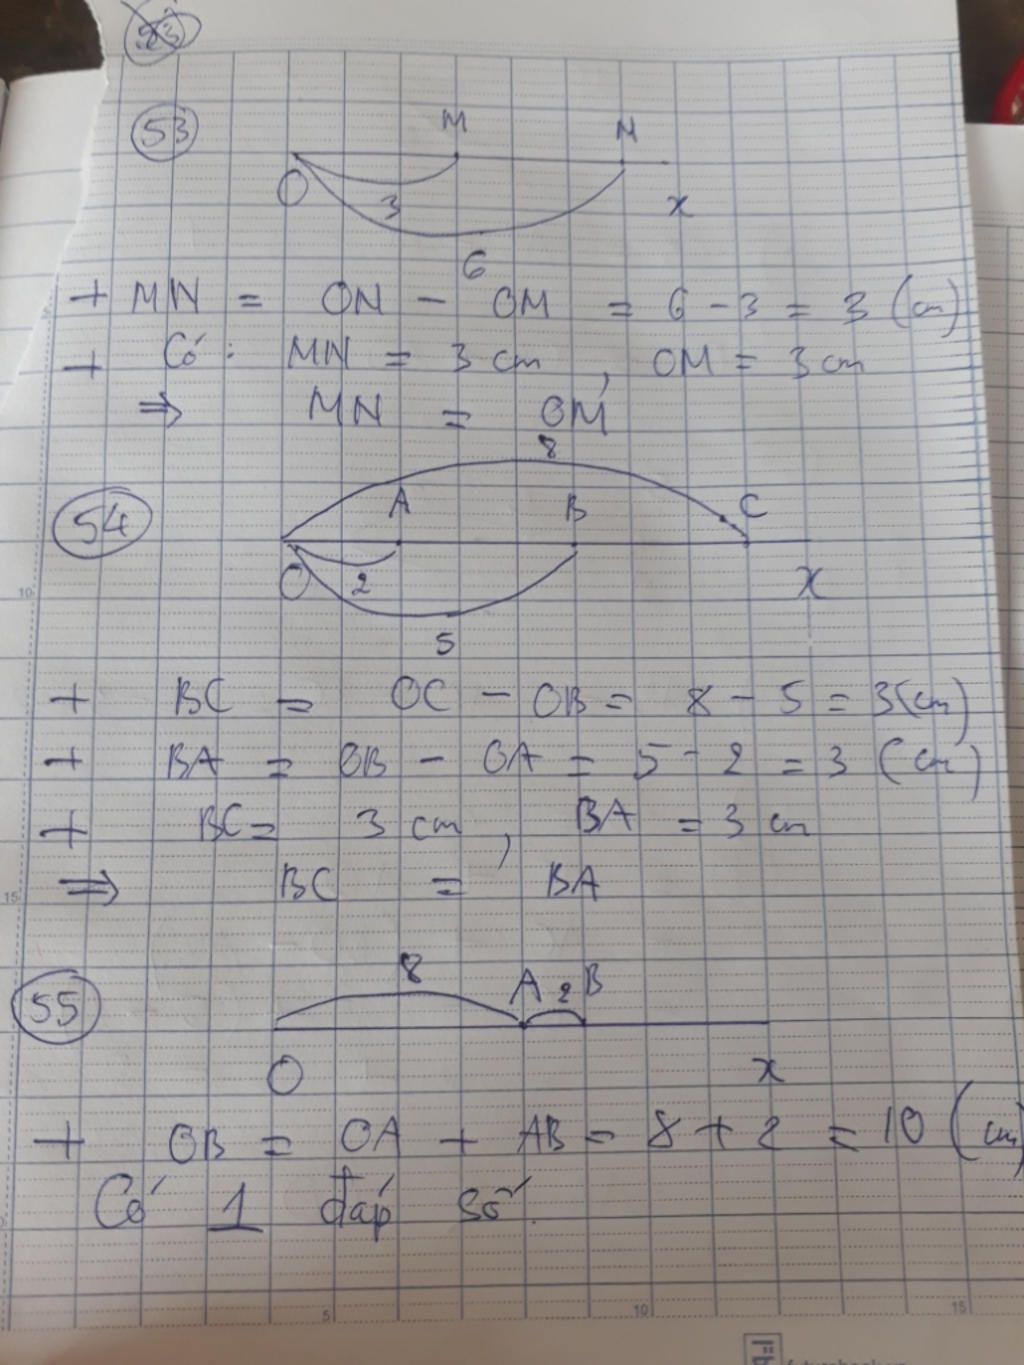 53
53
M N
O 3 x
6
+ MN = ON - OM = 6 - 3 = 3 (cm)
+ Có: MN = 3 cm, OM = 3 cm
⇒ MN = OM
8
54 A B C
O 2 x
10
5
+ BC = OC - OB = 8 - 5 = 3 (cm)
+ BA = OB - OA = 5 - 2 = 3 (cm)
+ BC = 3 cm, BA = 3 cm
⇒ BC = BA
15
55 8 A 2 B
O x
+ OB = OA + AB = 8 + 2 = 10 (cm)
Có 1 đáp số.
5 10 15